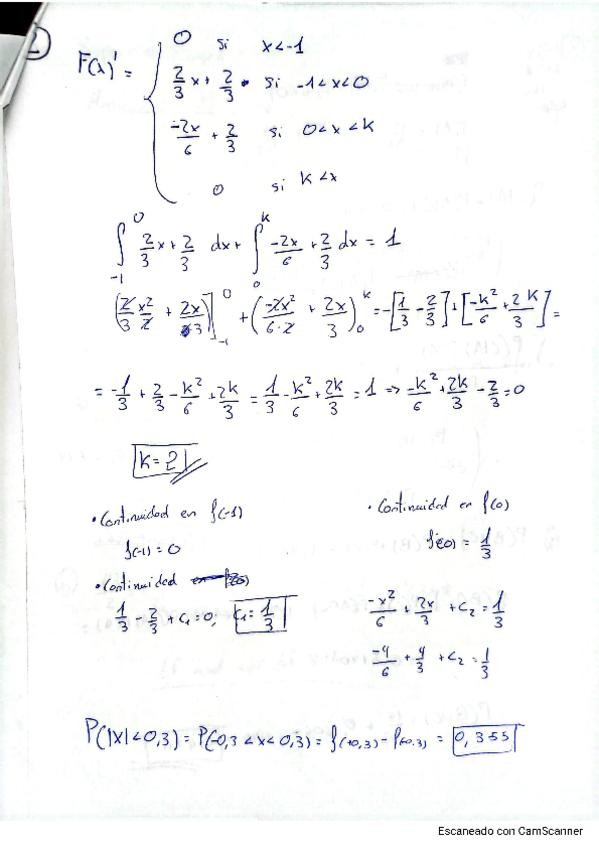 2)
F(x)' = { 0 si x<-1
2/3 x + 2/3 • si -1<x<0
-2x/6 + 2/3 si 0<x<k
0 si k<x
∫_{-1}^{0} 2/3 x + 2/3 dx + ∫_{0}^{k} -2x/6 + 2/3 dx = 1
(2/3 x²/2 + 2x/3]_{-1}^{0} + (-2x²/6·2 + 2x/3)_{0}^{k} = -[1/3 - 2/3] + [-k²/6 + 2k/3] =
= -1/3 + 2/3 - k²/6 + 2k/3 = 1/3 - k²/6 + 2k/3 = 1 => -k²/6 + 2k/3 - 2/3 = 0
k=2
• Continuidad en f(-1) • Continuidad en f(0)
f(-1) = 0 f(0) = 1/3
• Continuidad
1/3 - 2/3 + c₁ = 0, c₁ = 1/3 -x²/6 + 2x/3 + c₂ = 1/3
-4/6 + 4/3 + c₂ = 1/3
P(|X|<0,3) = P(-0,3<x<0,3) = f(+0,3) - f(-0,3) = 0,355
Escaneado con CamScanner